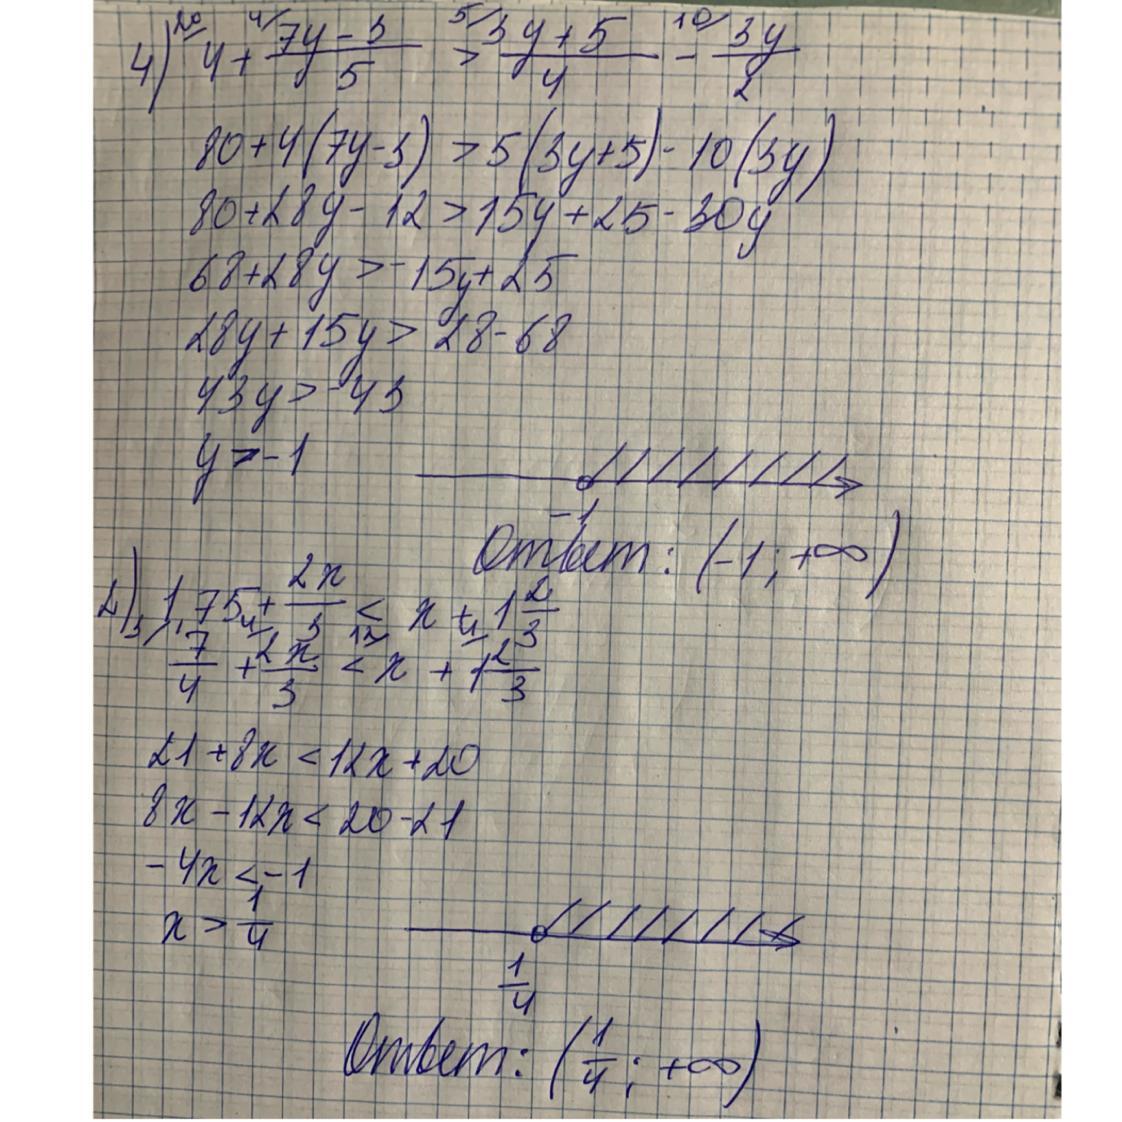 4) 20/ 4 + 4/ (7y - 3)/5 > 5/ (3y + 5)/4 - 10/ 3y/2
80+4(7y-3) > 5(3y+5)-10(3y)
80+28y-12>15y+25-30y
68+28y>-15y+25
28y+15y> 28-68
43y>-43
y>-1
-1
Ответ: (-1; +∞)
2) 3/ 1,75 + 4/ 2x/3 < 12/ x + 4/ 1 2/3
7/4 + 2x/3 < x + 1 2/3
21+8x<12x+20
8x-12x<20-21
-4x<-1
x > 1/4
1/4
Ответ: (1/4; +∞)